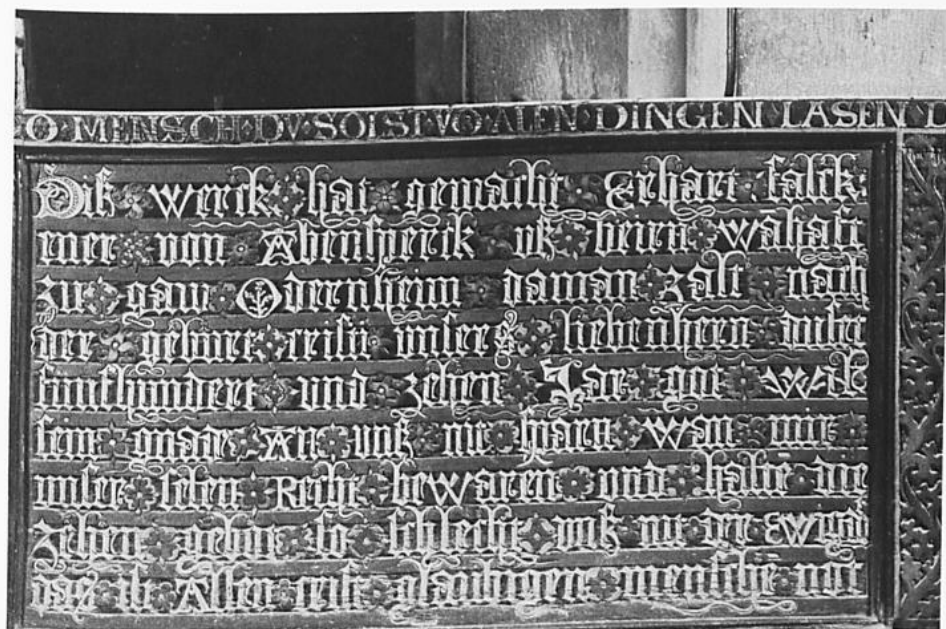 O·MENSCH·DV·SOLST·VO·ALEN·DINGEN·LASEN
Dis werck hat gemacht Erhart falck:
ener von Abensperck us beiern wahaft
zu gau Odernheim da man zalt nach
der geburt cristi unsers lieben hern
funfhundert und zehen Jar got wil
sein gnad An uns nit sparn Wan mir
unser selen Recht bewaren und halte die
zehen gebot so schlecht uns nit der Ewig
daz ist Allen crist glaubigen mensche not